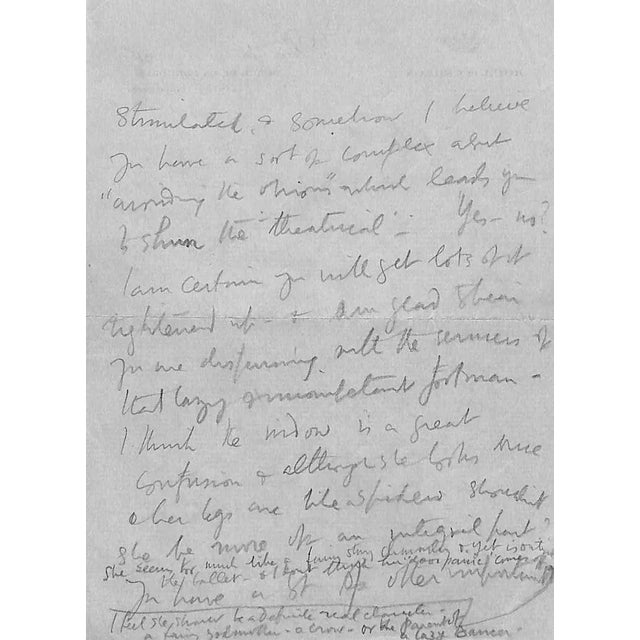 Stimulated, & somehow I believe
you have a sort of complex about
"avoiding the obvious" which leads you
to shun the "theatrical" – Yes – no?
I am certain you will get lots of it
tightened up – & I am glad to hear
you are dispensing with the services of
that lazy & incompetent footman –
I think the widow is a great
confusion & although she looks nice
& her legs are like a spiders shouldnt
she be more of an integral part?
She seems too much like a fairy story &
the ballet – & I dont think
you have a
I feel she should be a definite real character –
a fairy godmother – a crow – or the parent of
a lazy dancer –